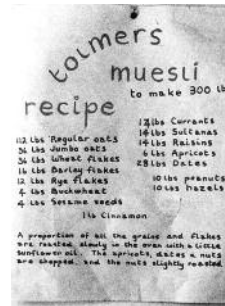 tolmers
muesli
recipe
to make 300 lb
112 lbs Regular oats
56 lbs Jumbo oats
56 lbs Wheat flakes
16 lbs Barley flakes
12 lbs Rye flakes
4 lbs Buckwheat
4 lbs Sesame seeds
1 lb Cinnamon
14 lbs Currants
14 lbs Sultanas
14 lbs Raisins
6 lbs Apricots
28 lbs Dates
10 lbs peanuts
10 lbs hazels
A proportion of all the grains and flakes
are roasted slowly in the oven with a little
sunflower oil. The apricots, dates & nuts
are chopped, and the nuts slightly roasted